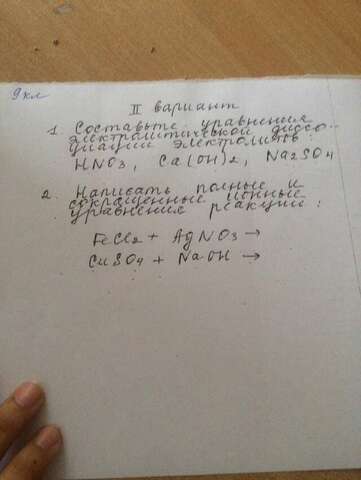 9 кл
II вариант
1. Составьте уравнения
электролитической диссо-
циации электролитов:
HNO3, Ca(OH)2, Na2SO4
2. Написать полные и
сокращенные ионные
уравнения реакций:
FeCl2 + AgNO3 →
CuSO4 + NaOH →